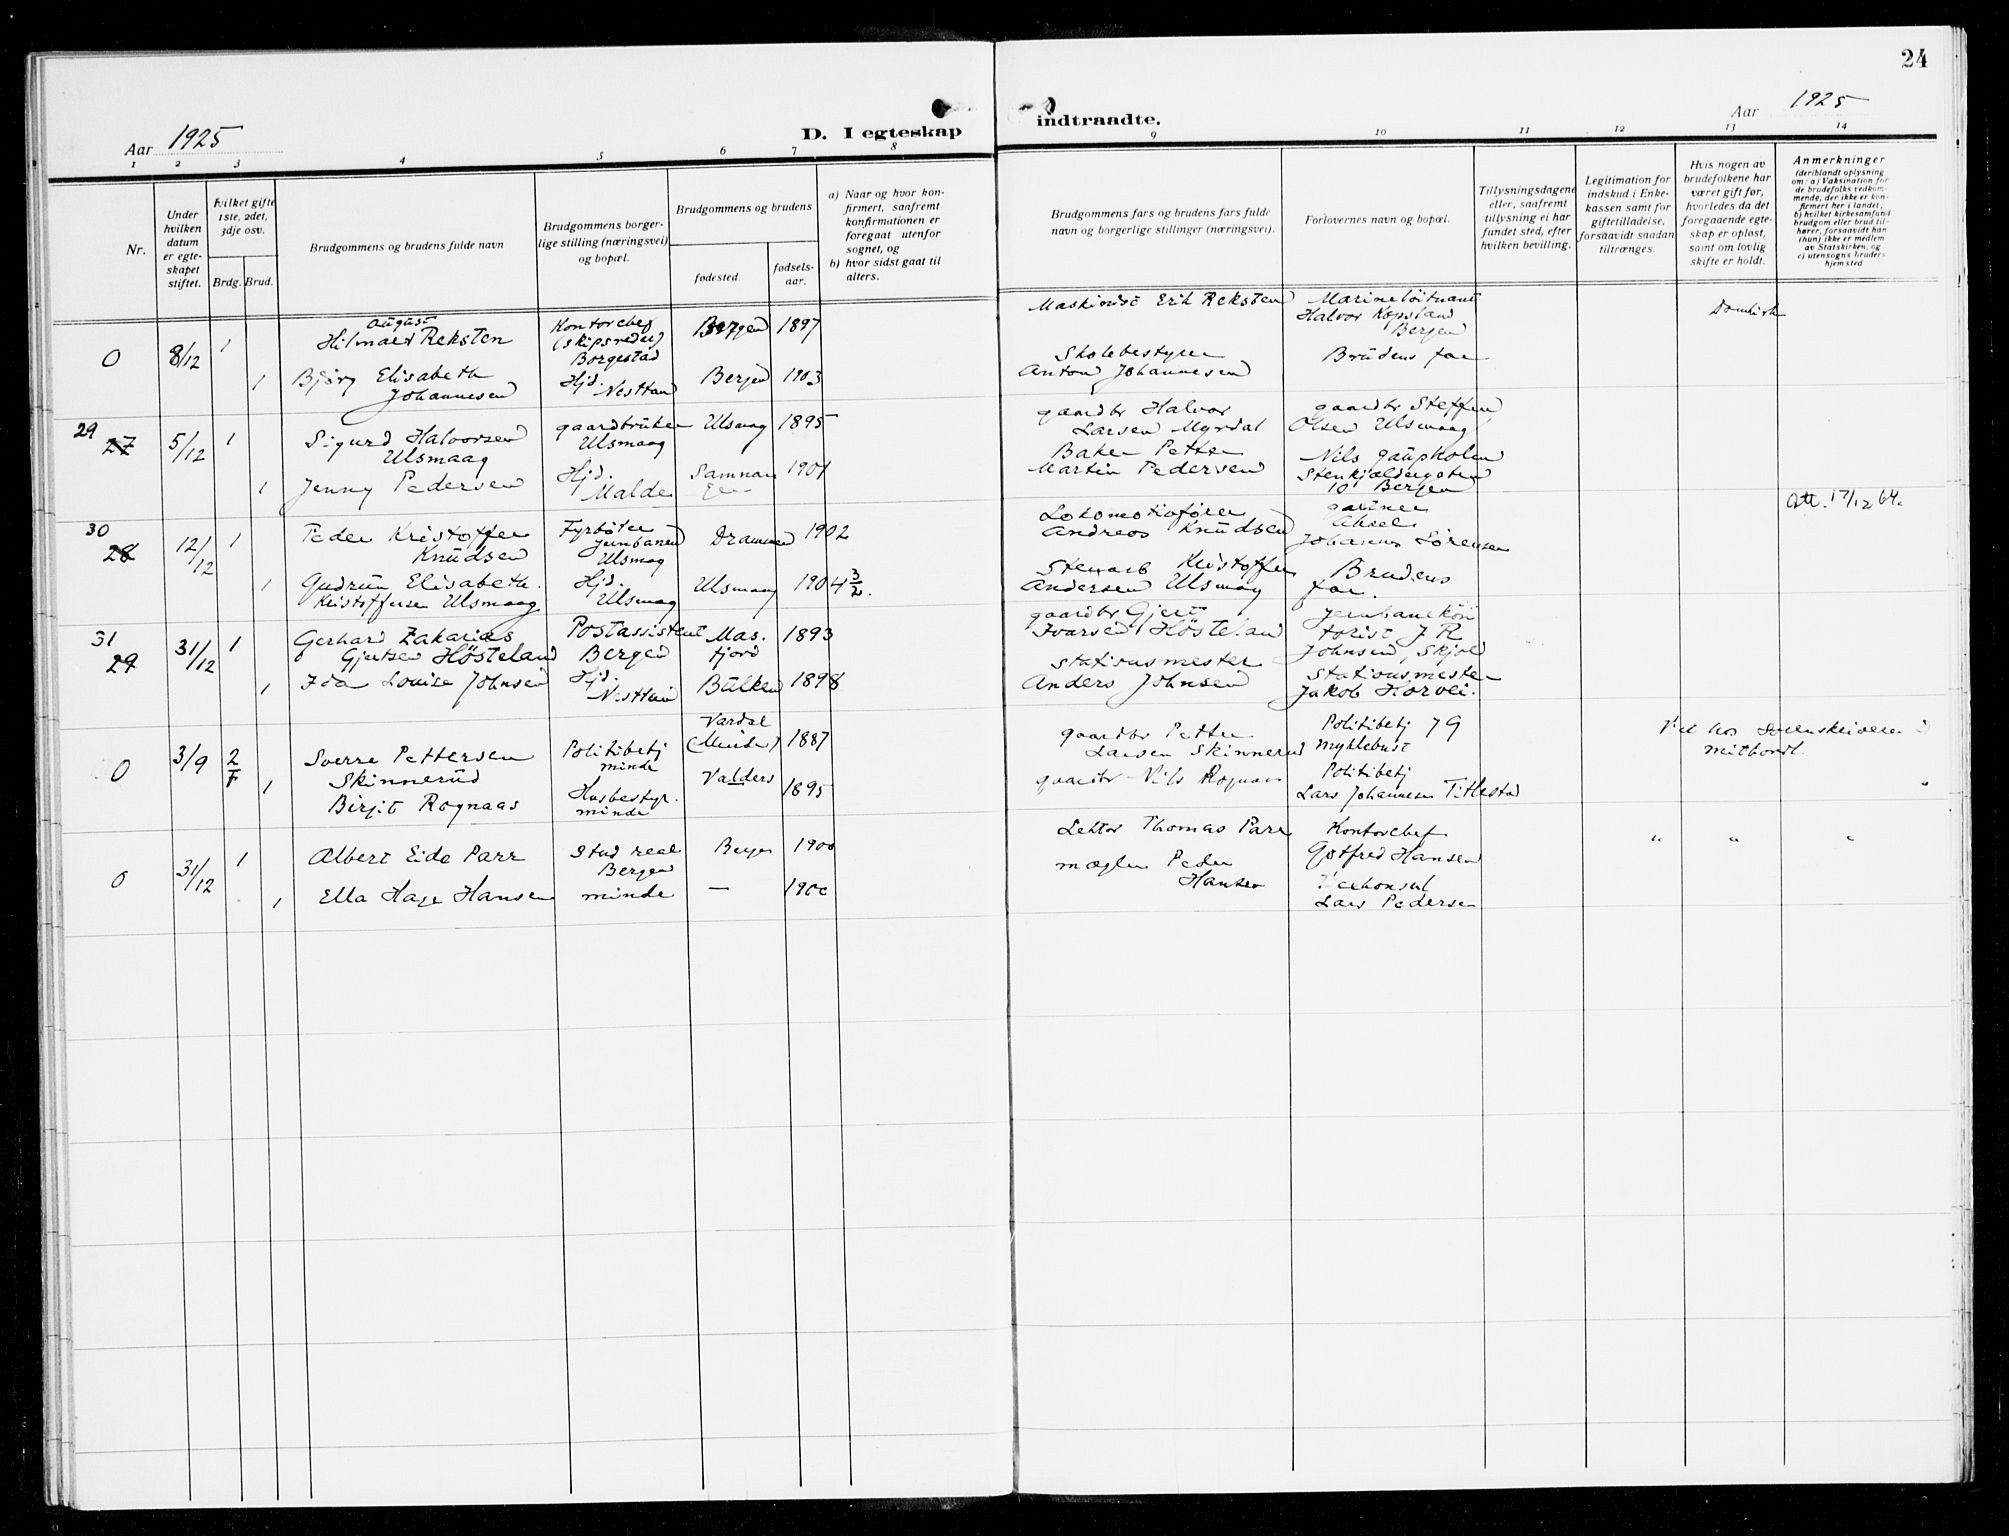 24
Aar 1925
D. I egteskap
indtraadte.
Aar 1925
1 2 3 4 5 6 7 8 9 10 11 12 13 14
Nr.
Under
hvilken
datum
er egte-
skapet
stiftet.
hvilket gifte
1ste, 2det,
3dje osv.
Brdg. Brud.
Brudgommens og brudens fulde navn
Brudgommens borger-
lige stilling (næringsvei)
og bopæl.
Brudgommens og brudens
fødested.
fødsels-
aar.
a) Naar og hvor kon-
firmert, saafremt
konfirmationen er
foregaat utenfor
sognet, og
b) hvor sidst gaat til
alters.
Brudgommens fars og brudens fars fulde
navn og borgerlige stillinger (næringsvei).
Forlovernes navn og bopæl.
Tillysningsdagene
eller, saafremt
tillysning ei har
fundet sted, efter
hvilken bevilling.
Legitimation for
indskud i Enke-
kassen samt for
giftetilladelse,
forsaavidt saadan
tiltrænges.
Hvis nogen av
brudefolkene har
været gift før,
hvorledes da det
foregaaende egte-
skap er opløst,
samt om lovlig
skifte er holdt.
Anmerkninger
(deriblandt oplysning
om: a) Vaksination for
de brudefolks vedkom-
mende, der ikke er kon-
firmert her i landet;
b) hvilket kirkesamfund
brudgom eller brud til-
hører, forsaavidt han
(hun) ikke er medlem
av Statskirken, og
c) utensogns bruders
hjemsted
0 8/12 1
August
Hilmar Reksten
Kontorchef
(skipsreder)
Borgestad
Bergen 1897
Maskinist Erik Reksten
Marineløitnant
Halvor Kopsland
Bergen
Domkirk
1 Bjørg Elisabeth
Johannesen
Hjd. Nesttun
Bergen 1903
Skolebestyrer
Anton Johannesen
Brudens far
29 27 5/12 1
Sigurd Halvorsen
Ulsmaag
gaardbruker
Ulsmaag
Ulsmaag 1895
gaardbr Halvor
Larsen Myrdal
gaardbr Steffen
Olsen Ulsmaag
1 Jenny Pedersen
Hjd.
Malde
Samnan
ger 1901
Baker Petter
Martin Pedersen
Nils Gaupholm
Stenkjældergaten
10 Bergen
30 28 12/12 1
Peder Kristoffer
Knudsen
Fyrbøter
Jernbanen
Ulsmag
Drammen 1902
Lokomotivfører
Andreas Knudsen
gartner
Aksel
Johannes Sørensen
Att. 17/12 64.
1 Gudrun Elisabeth
Kristoffersen Ulsmaag
Hjd.
Ulsmag
Ulsmaag 1904 3/2.
Stenarb Kristoffer
Andersen Ulsmag
Brudens
far.
31 29 31/12 1
Gerhard Zakarias
Gjertsen Høsteland
Postassistent
Bergen
Mas.
fjord 1893
gaardbr Gjert
Ivarsen Høsteland
Jernbanekon
torist J R
Johnsen, Skjold
1 Ida Louise Johnsen
Hjd.
Nesttun
Bulken 1898
Stationsmester
Anders Johnsen
Stationsmester
Jakob Horvei.
0 3/9 2/F
Sverre Pettersen
Skinnerud
Politibetj
minde
Vardal
1887
gaardbr Petter
Larsen Skinnerud
Politibetj 79
Myklebust
1 Birgit Rognaas
Husbestyr.
minde
Valders 1895
gaardbr Nils Rognaas
Politibetj
Lars Johannesen Titlestad
0 31/12 1
Albert Eide Parr
Stud real
Bergen
Bergen 1900
Lektor Thomas Parr
Kontorchef
Gotfred Hansen
" " "
1 Ella Hage Hansen
minde
— 1900
mægler Peder
Hansen
Vicekonsul
Lars Pedersen